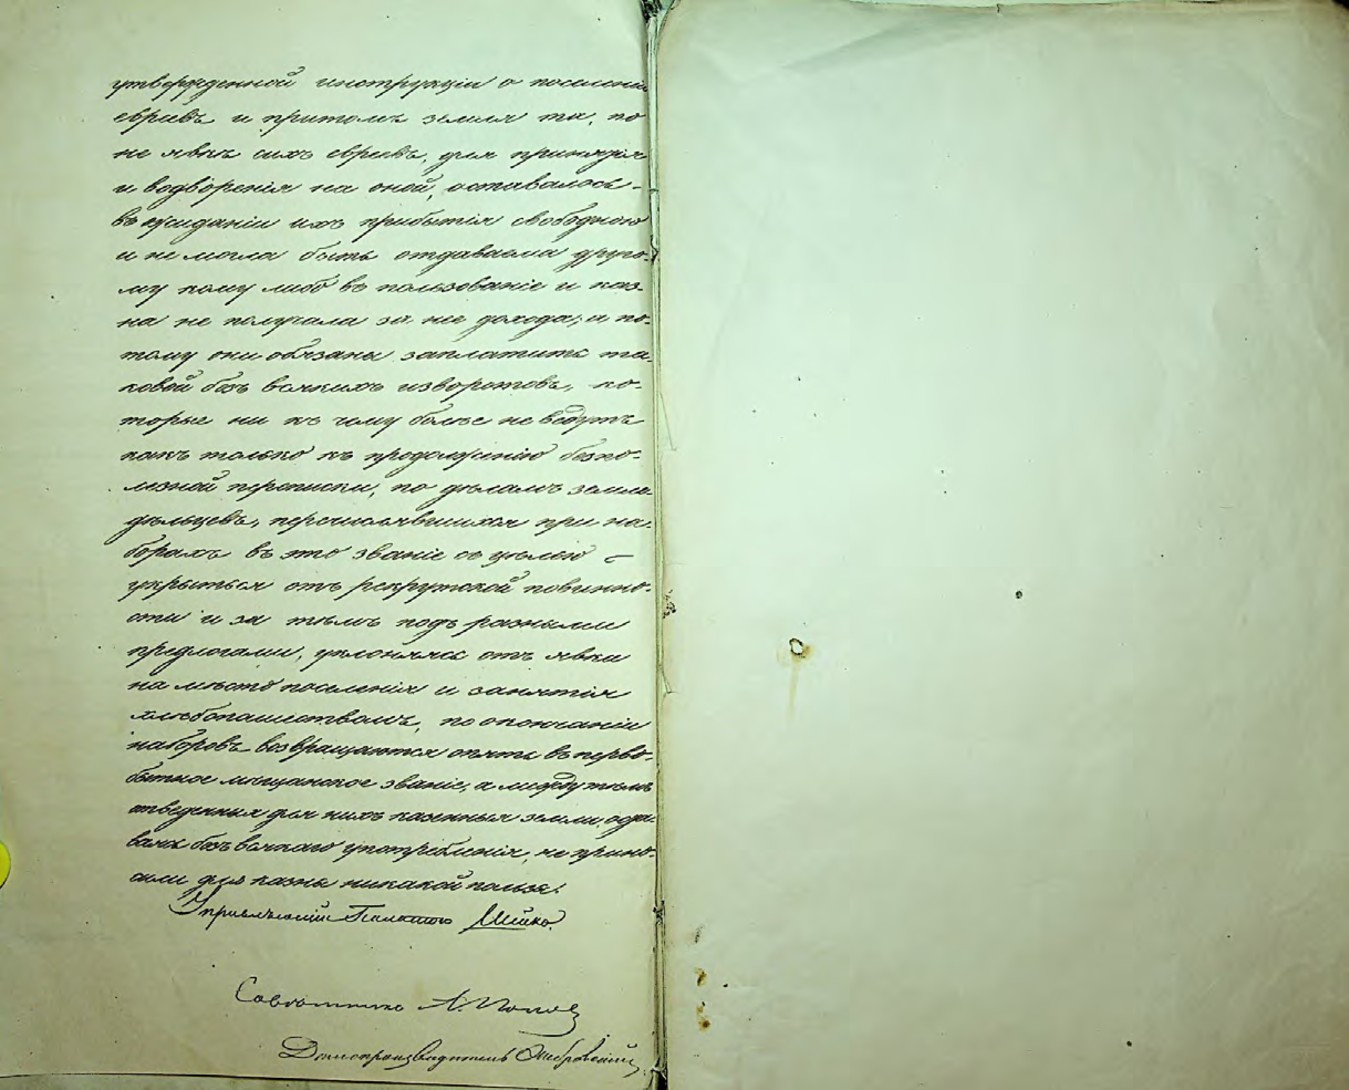 утвержденной инструкціи о поселеніи
евреевъ и притомъ земля та, по
не явкѣ сихъ евреевъ, для принятія
и водворенія на оной, оставалось-
въ ожиданіи ихъ прибытія свободною
и не могла быть отдаваема друго-
му кому либо въ пользованіе и каз-
на не получала за нее дохода; а по-
тому они обязаны заплатить та-
ковой безъ всякихъ изворотовъ, ко-
торые ни къ чему болѣе не ведутъ
какъ только къ продолженію безпо-
лезной переписки, по дѣламъ земле-
дѣльцевъ, перечислявшихся при на-
борахъ въ это званіе съ цѣлію -
укрыться отъ рекрутской повинно-
сти и за тѣмъ подъ разными
предлогами, уклоняясь отъ явки
на мѣсто поселенія и занятія
хлебопашествомъ, по окончаніи
наборовъ возвращаются опять въ перво-
бытное мѣщанское званіе, а между тѣмъ
отведенныя для нихъ казенныя земли, оста-
ваясь безъ всякаго употребленія, не прино-
сили для казны никакой пользы.
Управляющій Палатою
Совѣтникъ А. Поповъ
Делопроизводитель